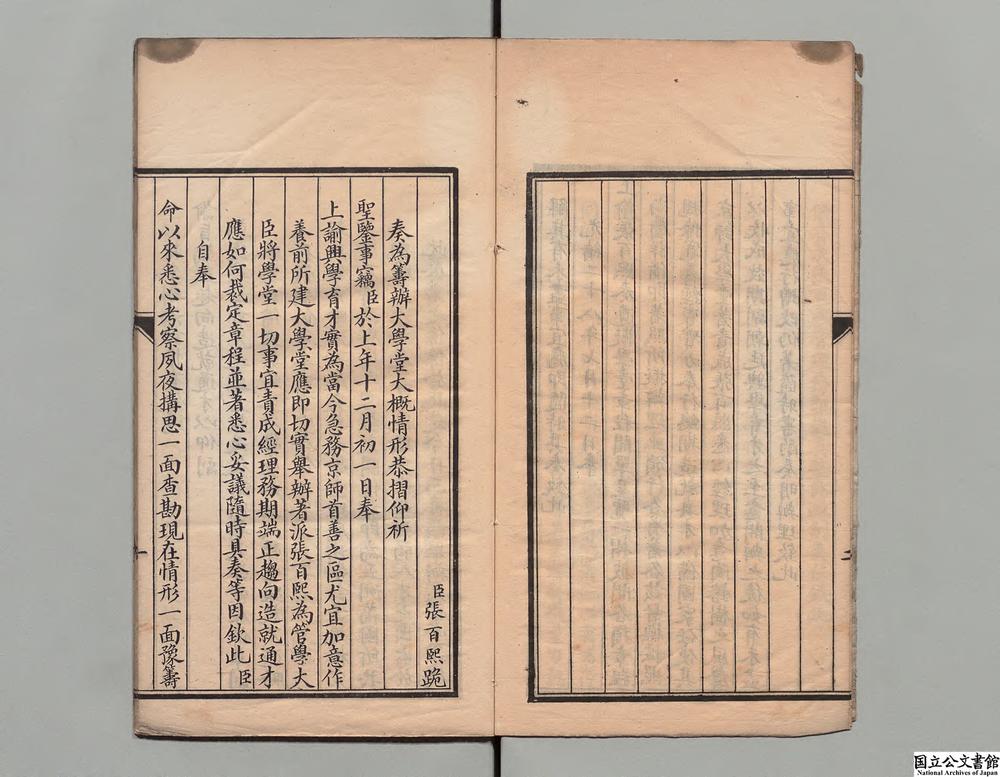 臣張百熙跪
奏為籌辦大學堂大概情形恭摺仰祈
聖鑒事竊臣於上年十二月初一日奉
上諭興學育才實為當今急務京師首善之區尤宜加意作
養前所建大學堂應即切實舉辦著派張百熙為管學大
臣將學堂一切事宜責成經理務期端正趨向造就通才
應如何裁定章程並著悉心妥議隨時具奏等因欽此臣
自奉
命以來悉心考察夙夜搆思一面查勘現在情形一面豫籌
一
二
国立公文書館
National Archives of Japan